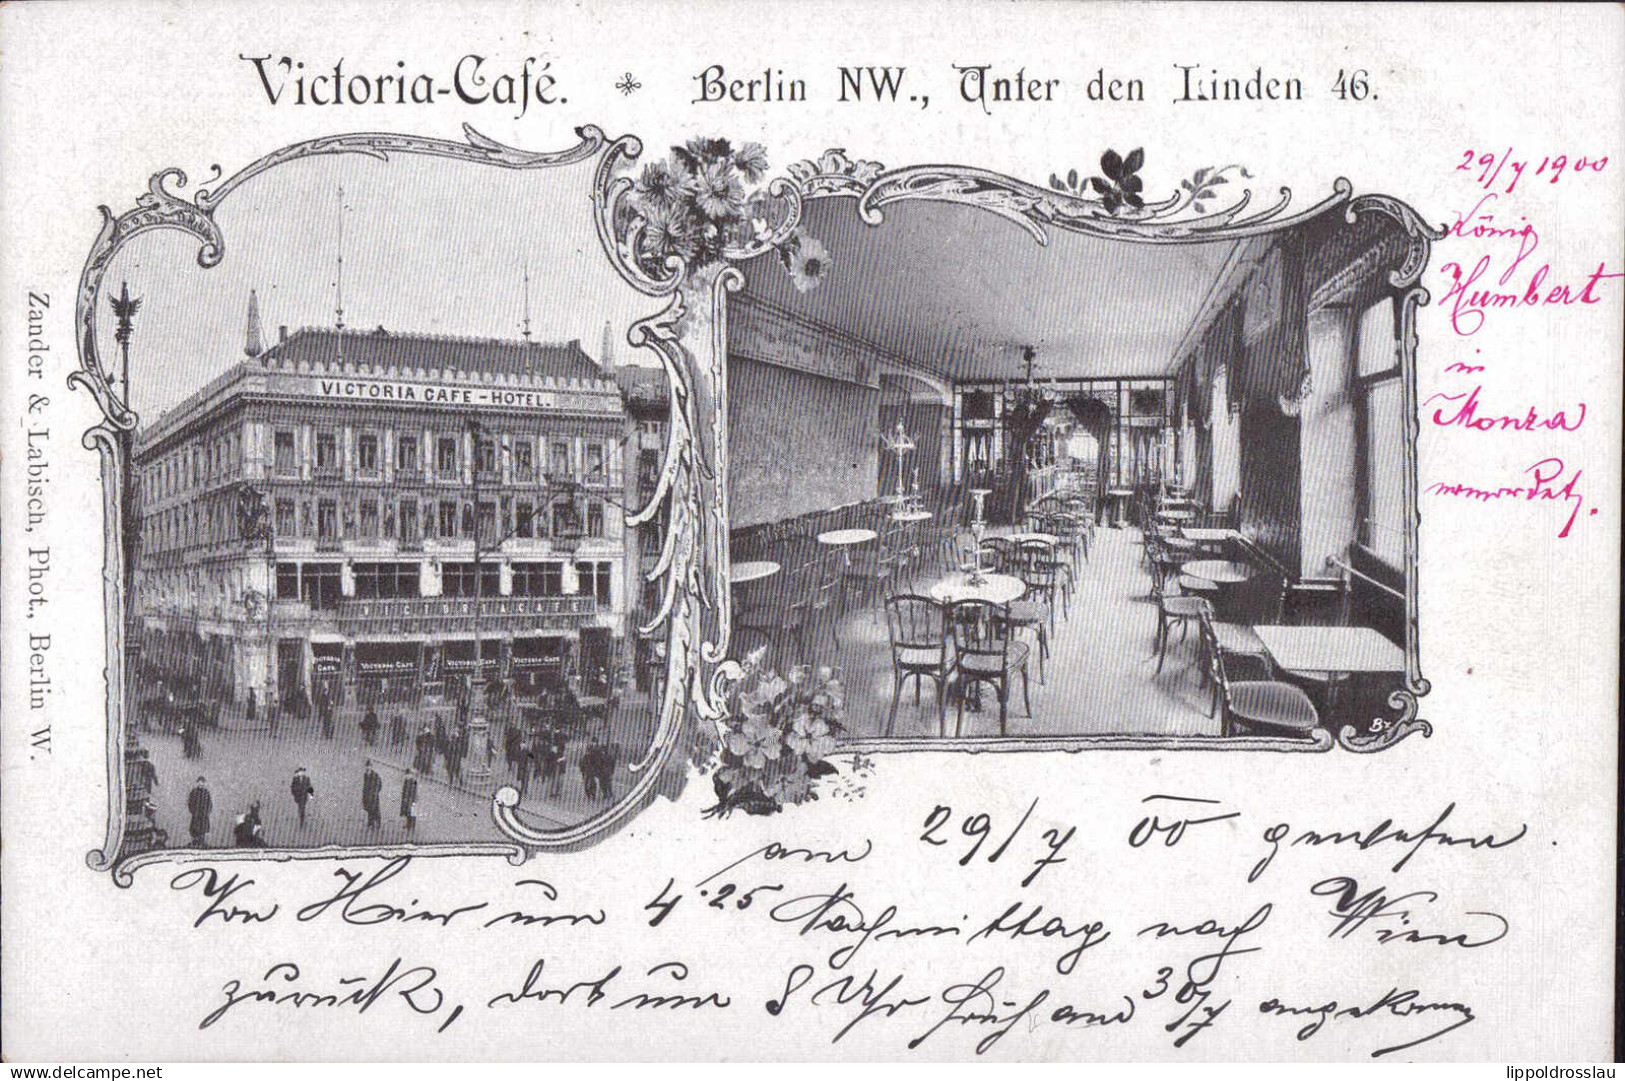 Victoria-Café. * Berlin NW., Unter den Linden 46.
29/7 1900
König
Humbert
in
Monza
ermordet.
VICTORIA CAFE-HOTEL.
VICTORIA CAFE
VICTORIA CAFE
VICTORIA-CAFE
VICTORIA CAFE
VICTORIA-CAFE
Zander & Labisch, Phot., Berlin W.
am 29/7 00 gewesen.
Von Hier um 4.25 Nachmittag nach Wien
zurück, dort um 8 Uhr früh am 30/7 angekommen
www.delcampe.net
lippoldrosslau